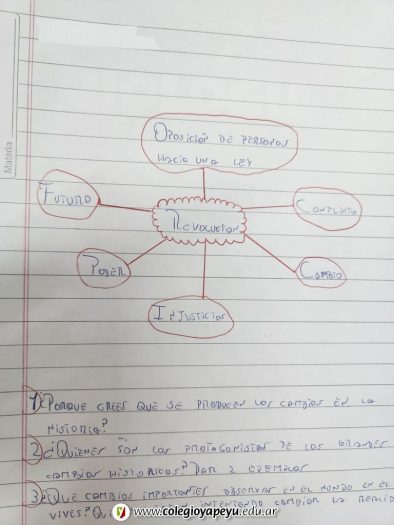 Materia
Oposición de personas
hacia una ley
Futuro
Conflicto
Revolucion
Poder
Cambio
Injusticias
1) Porque crees que se producen los cambios en la
historia?
2) ¿Quienes son los protagonistas de los grandes
cambios historicos? Dar 2 ejemplos
3) ¿Que cambios importantes observas en el mundo en el
vives? Qui intentando cambiar la realid
www.colegioyapeyu.edu.ar